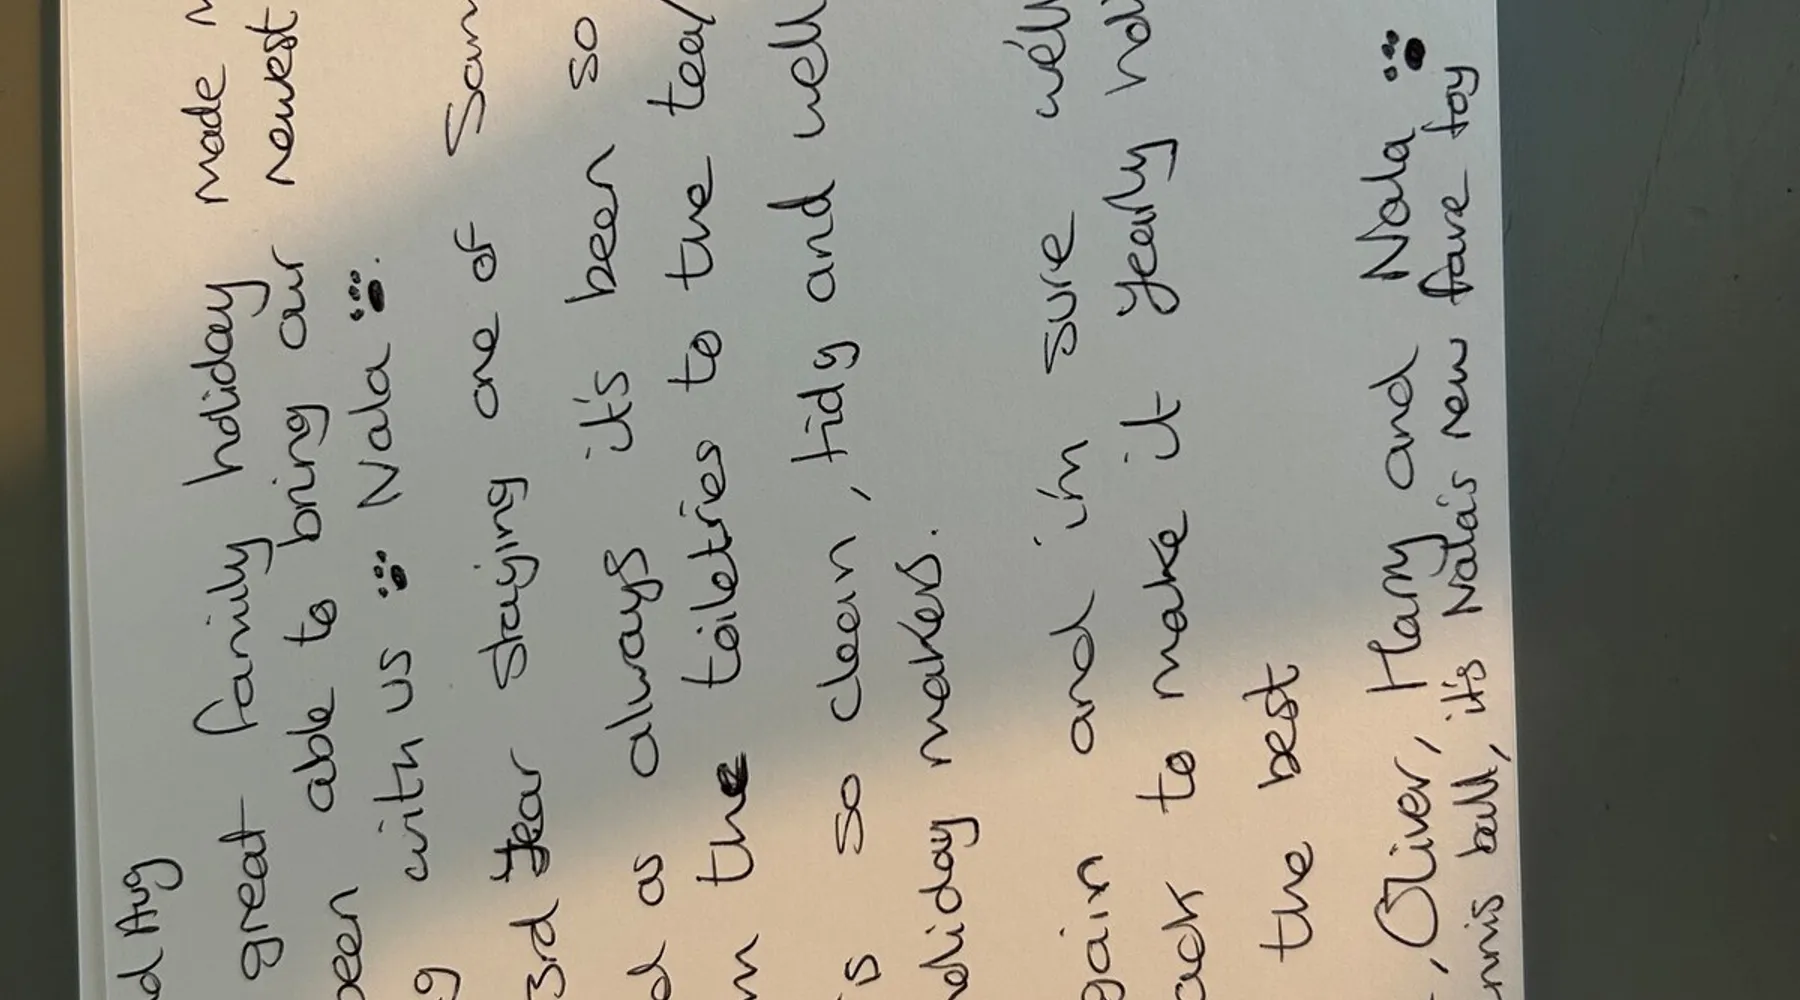 d Aug
great family holiday made
been able to bring our newest
g with us Nala
3rd year staying one of
d as always it's been so
m the toiletries to the tea/
is so clean, tidy and well
oliday makers.
gain and i'm sure we'll
ack to make it yearly
the best
, Oliver, Harry and Nala
nnis ball, it's Nala's new fave toy